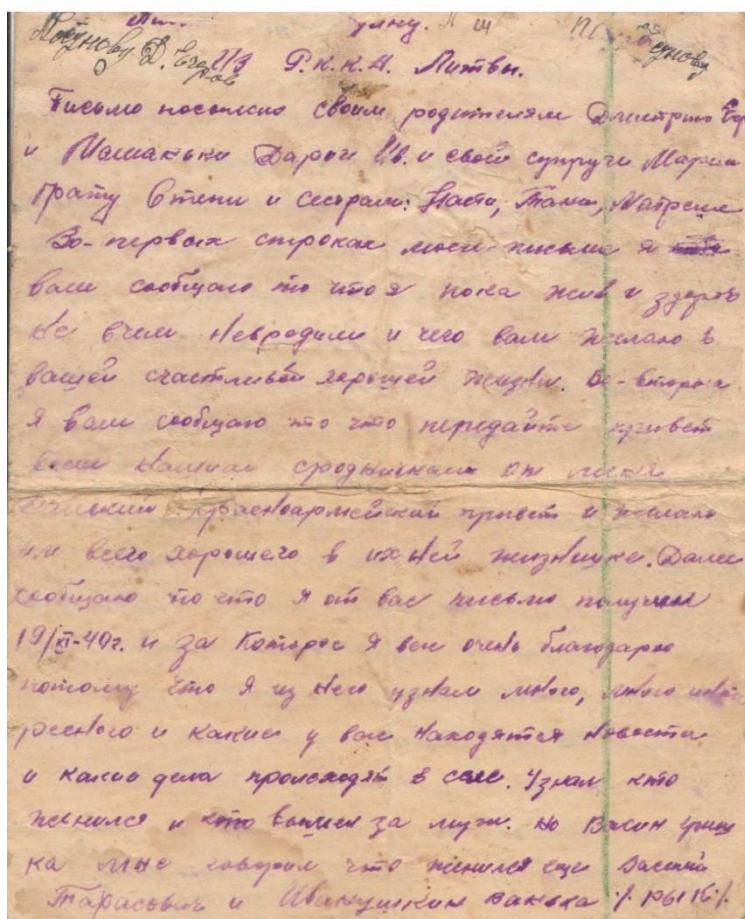 из Р.К.К.А. Литвы.
Письмо посылаю своим родителям Дмитрию Ег
и Маманьки Дарьи Ив. и свой супруги Марии
брату Степи и сестрам: Насти, Тани, Матрене
Во-первых строках моего письма я
вам сообщаю то что я пока жив и здоров
не вчем невредим и чего вам желаю в
вашей счастливой хорошей жизни. Во-вторых
я вам сообщаю то что передайте привет
всем нашим сродникам от меня
красноармейский привет и желаю
им всего хорошего в ихней жизнешке. Далее
сообщаю то что я от вас письмо получил
19/XI-40г. и за которое я вам очень благодарю
потому что я из него узнал много, много инте
ресного и какие у вам находятся новости
и какие дела происходят в селе. Узнал кто
женился и кто вышел за муж. но Васин
ка мне говорил что женился еще Василий
Тарасович и Иванушкин Ванька